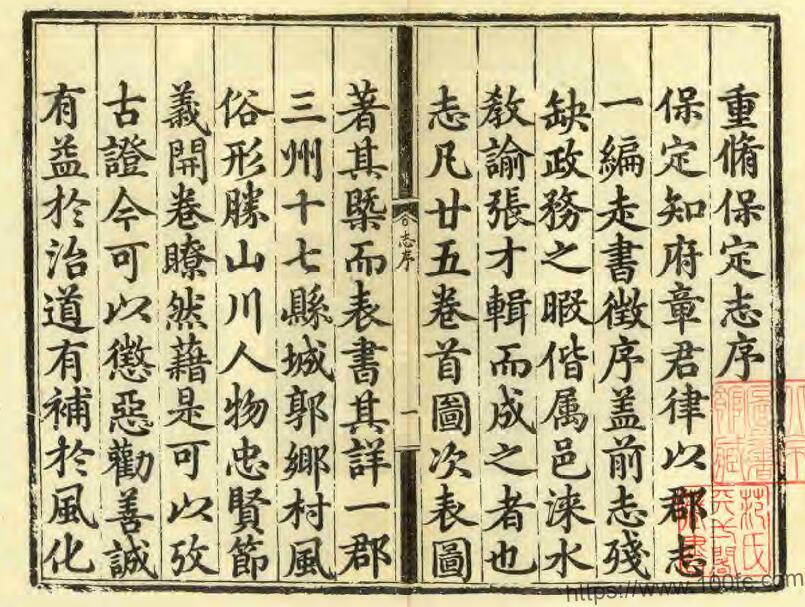 重脩保定志序
保定知府章君律以郡志
一編走書徴序盖前志殘
缺政務之暇偕属邑淶水
教諭張才輯而成之者也
志凡廿五卷首圖次表圖
志序
一
著其槩而表書其詳一郡
三州十七縣城郭郷村風
俗形勝山川人物忠賢節
義開卷瞭然藉是可以攷
古證今可以懲惡勸善誠
有益於治道有補於風化
范氏
https://www.100fe.com